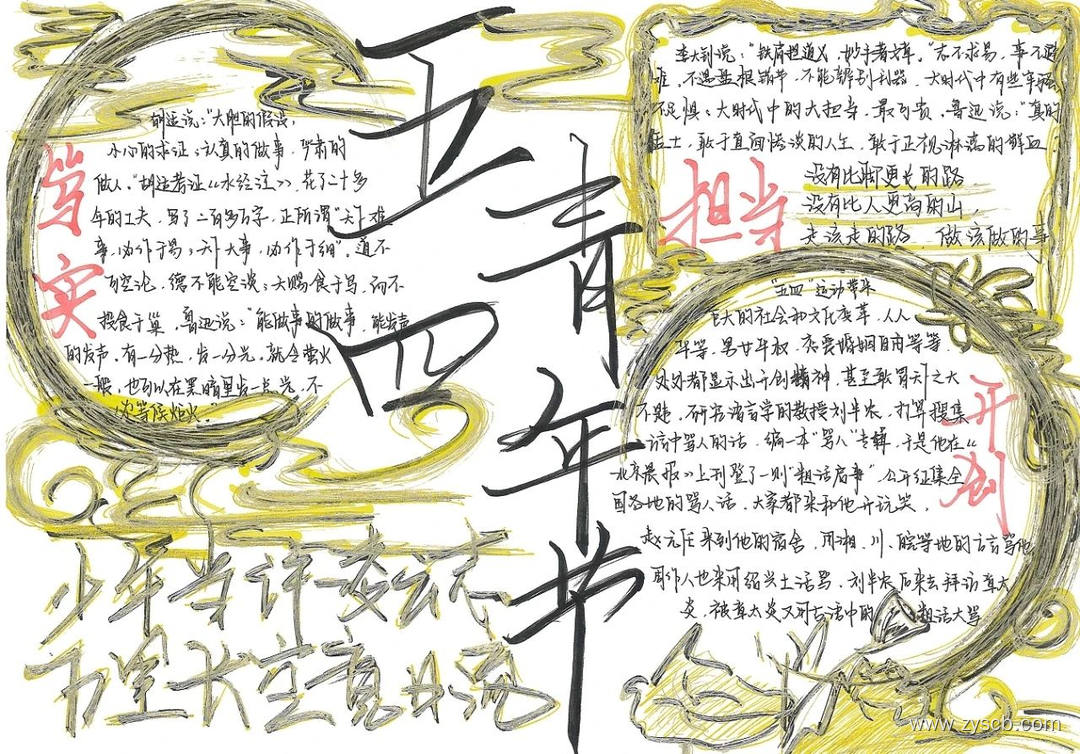 五四
青年节
笃实
胡适说：“大胆的假设，
小心的求证；认真的做事，严肃的
做人。”胡适考证《水经注》，花了二十多
年的工夫，写了二百多万字，正所谓“天下难
事，必作于易；天下大事，必作于细”。道不
可空论，德不能空谈；大鹏食于鸟，而不
投食于巢，鲁迅说：“能做事的做事，能发声
的发声，有一分热，发一分光，就令萤火
一般，也可以在黑暗里发一点光，不
必等候炬火。”
李大钊说：“铁肩担道义，妙手著文章。”志不求易，事不避
难，不遇盘根错节，不能辨别利器。大时代中有些
不足惧；大时代中的大担当，最可贵，鲁迅说：“真的
猛士，敢于直面惨淡的人生，敢于正视淋漓的鲜血
担当
没有比脚更长的路
没有比人更高的山，
走该走的路 做该做的事
“五四”运动带来
巨大的社会和文化变革，人人
平等，男女平权，恋爱婚姻自由等等，
处处都显示出开创精神，甚至敢冒天之大
不韪，研究语言学的教授刘半农，打算搜集
语中骂人的话，编一本“骂人”专辑，于是他在《
北京晨报》上刊登了一则“粗话启事”，公开征集全
国各地的骂人话，大家都来和他开玩笑，
赵元任来到他的宿舍，用湘、川、皖等地的方言骂他
周作人也来用绍兴土话骂，刘半农后来去拜访章太
炎，被章太炎又用古话中的 粗话大骂
开创
少年当许凌云志
万里长空竞风流
www.zyscb.com